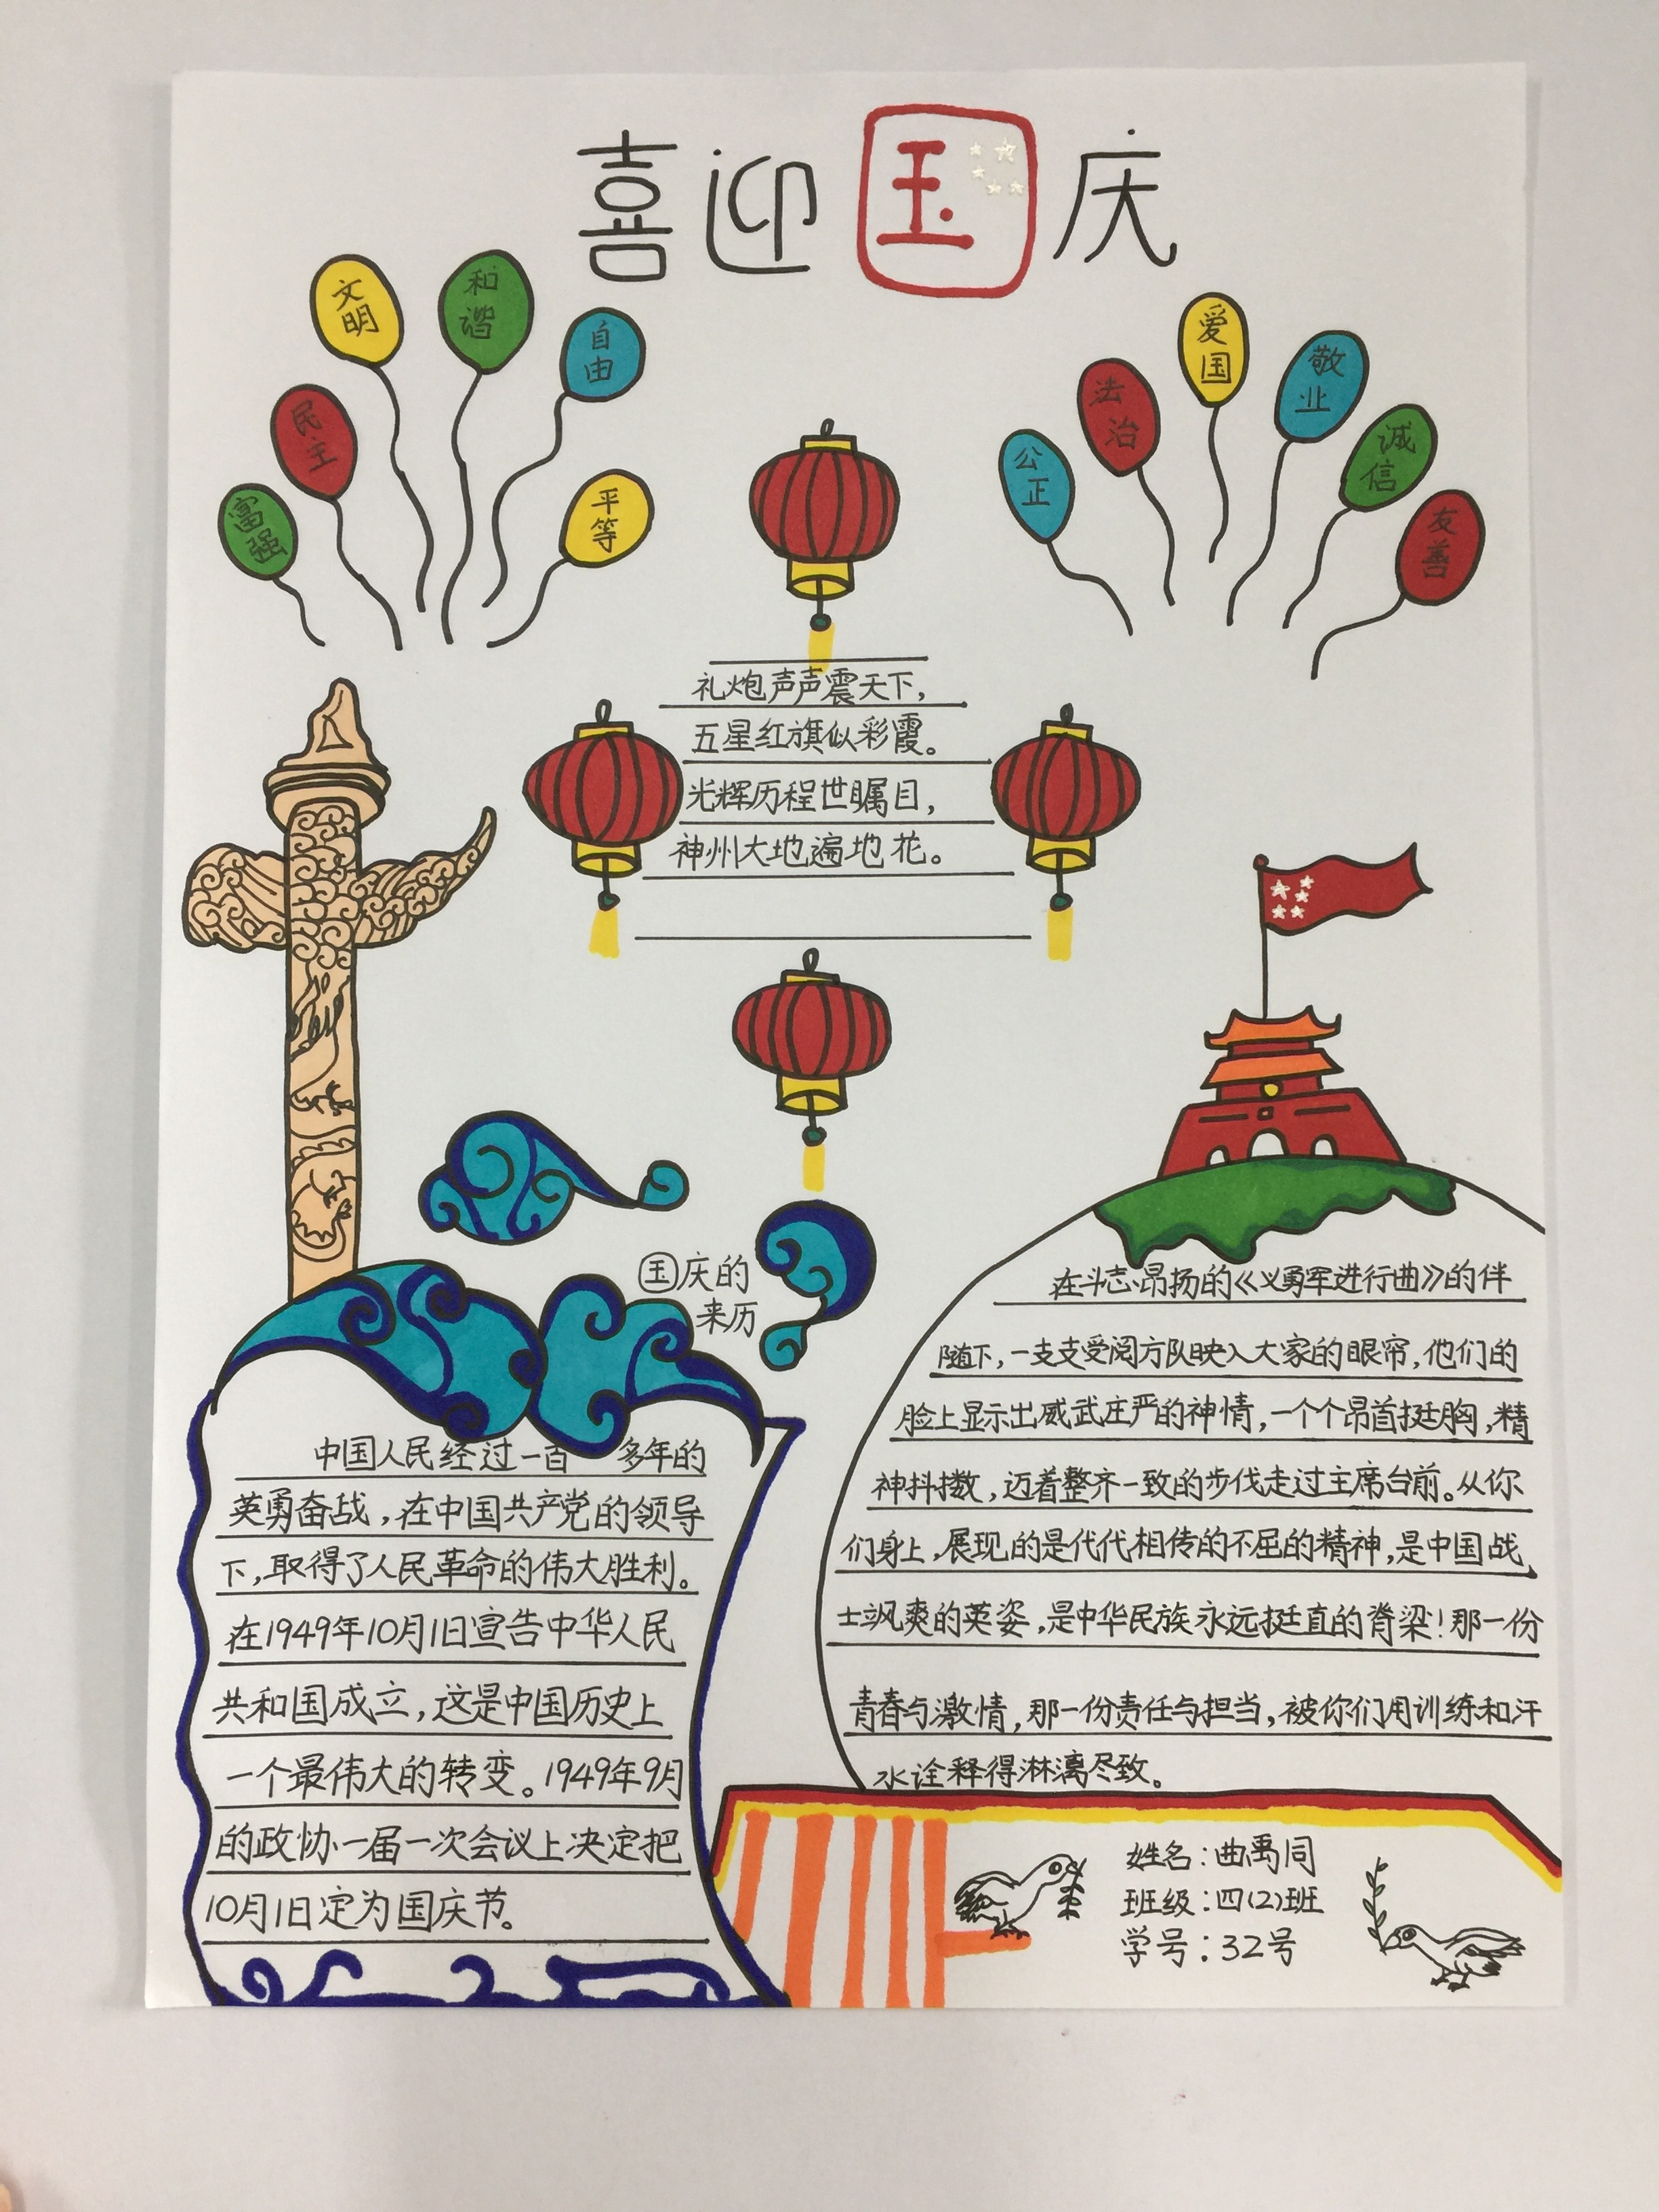 喜迎国庆
富强
民主
文明
和谐
自由
平等
公正
法治
爱国
敬业
诚信
友善
礼炮声声震天下，
五星红旗似彩霞。
光辉历程世瞩目，
神州大地遍地花。
国庆的
来历
中国人民经过一百多年的
英勇奋战，在中国共产党的领导
下，取得了人民革命的伟大胜利。
在1949年10月1日宣告中华人民
共和国成立，这是中国历史上
一个最伟大的转变。1949年9月
的政协一届一次会议上决定把
10月1日定为国庆节。
在斗志昂扬的《义勇军进行曲》的伴
随下，一支支受阅方队映入大家的眼帘，他们的
脸上显示出威武庄严的神情，一个个昂首挺胸，精
神抖擞，迈着整齐一致的步伐走过主席台前。从你
们身上，展现的是代代相传的不屈的精神，是中国战
士飒爽的英姿，是中华民族永远挺直的脊梁！那一份
青春与激情，那一份责任与担当，被你们用训练和汗
水诠释得淋漓尽致。
姓名：曲禹同
班级：四(2)班
学号：32号